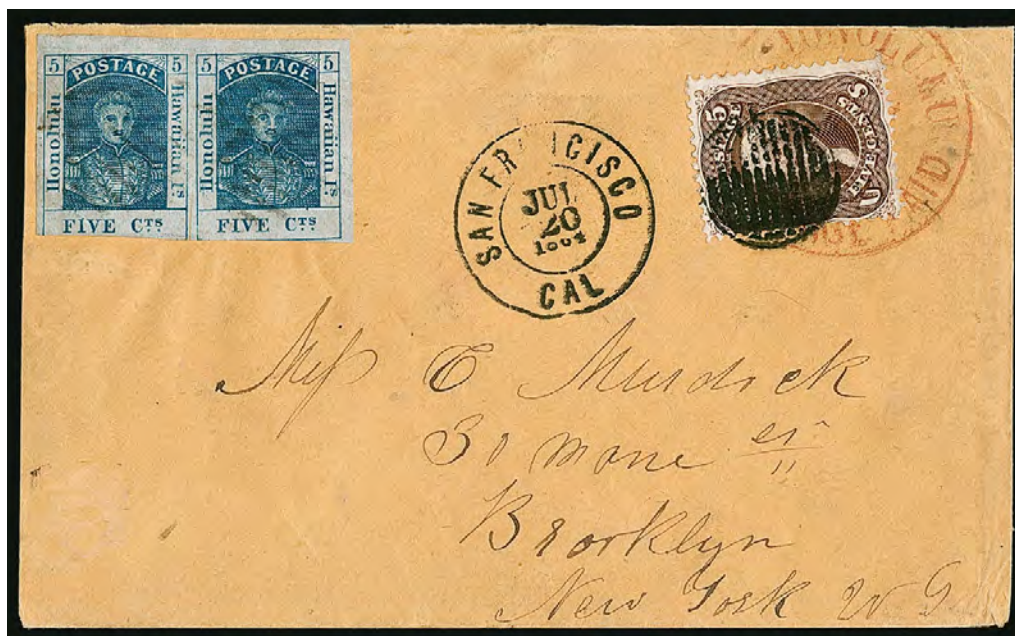 5 POSTAGE 5
Honolulu
Hawaiian Is
FIVE CTS
5 POSTAGE 5
Honolulu
Hawaiian Is
FIVE CTS
SAN FRANCISCO
JUL
20
CAL
HONOLULU
PAID
5
Miss C Murdock
30 mone
Brooklyn
New York